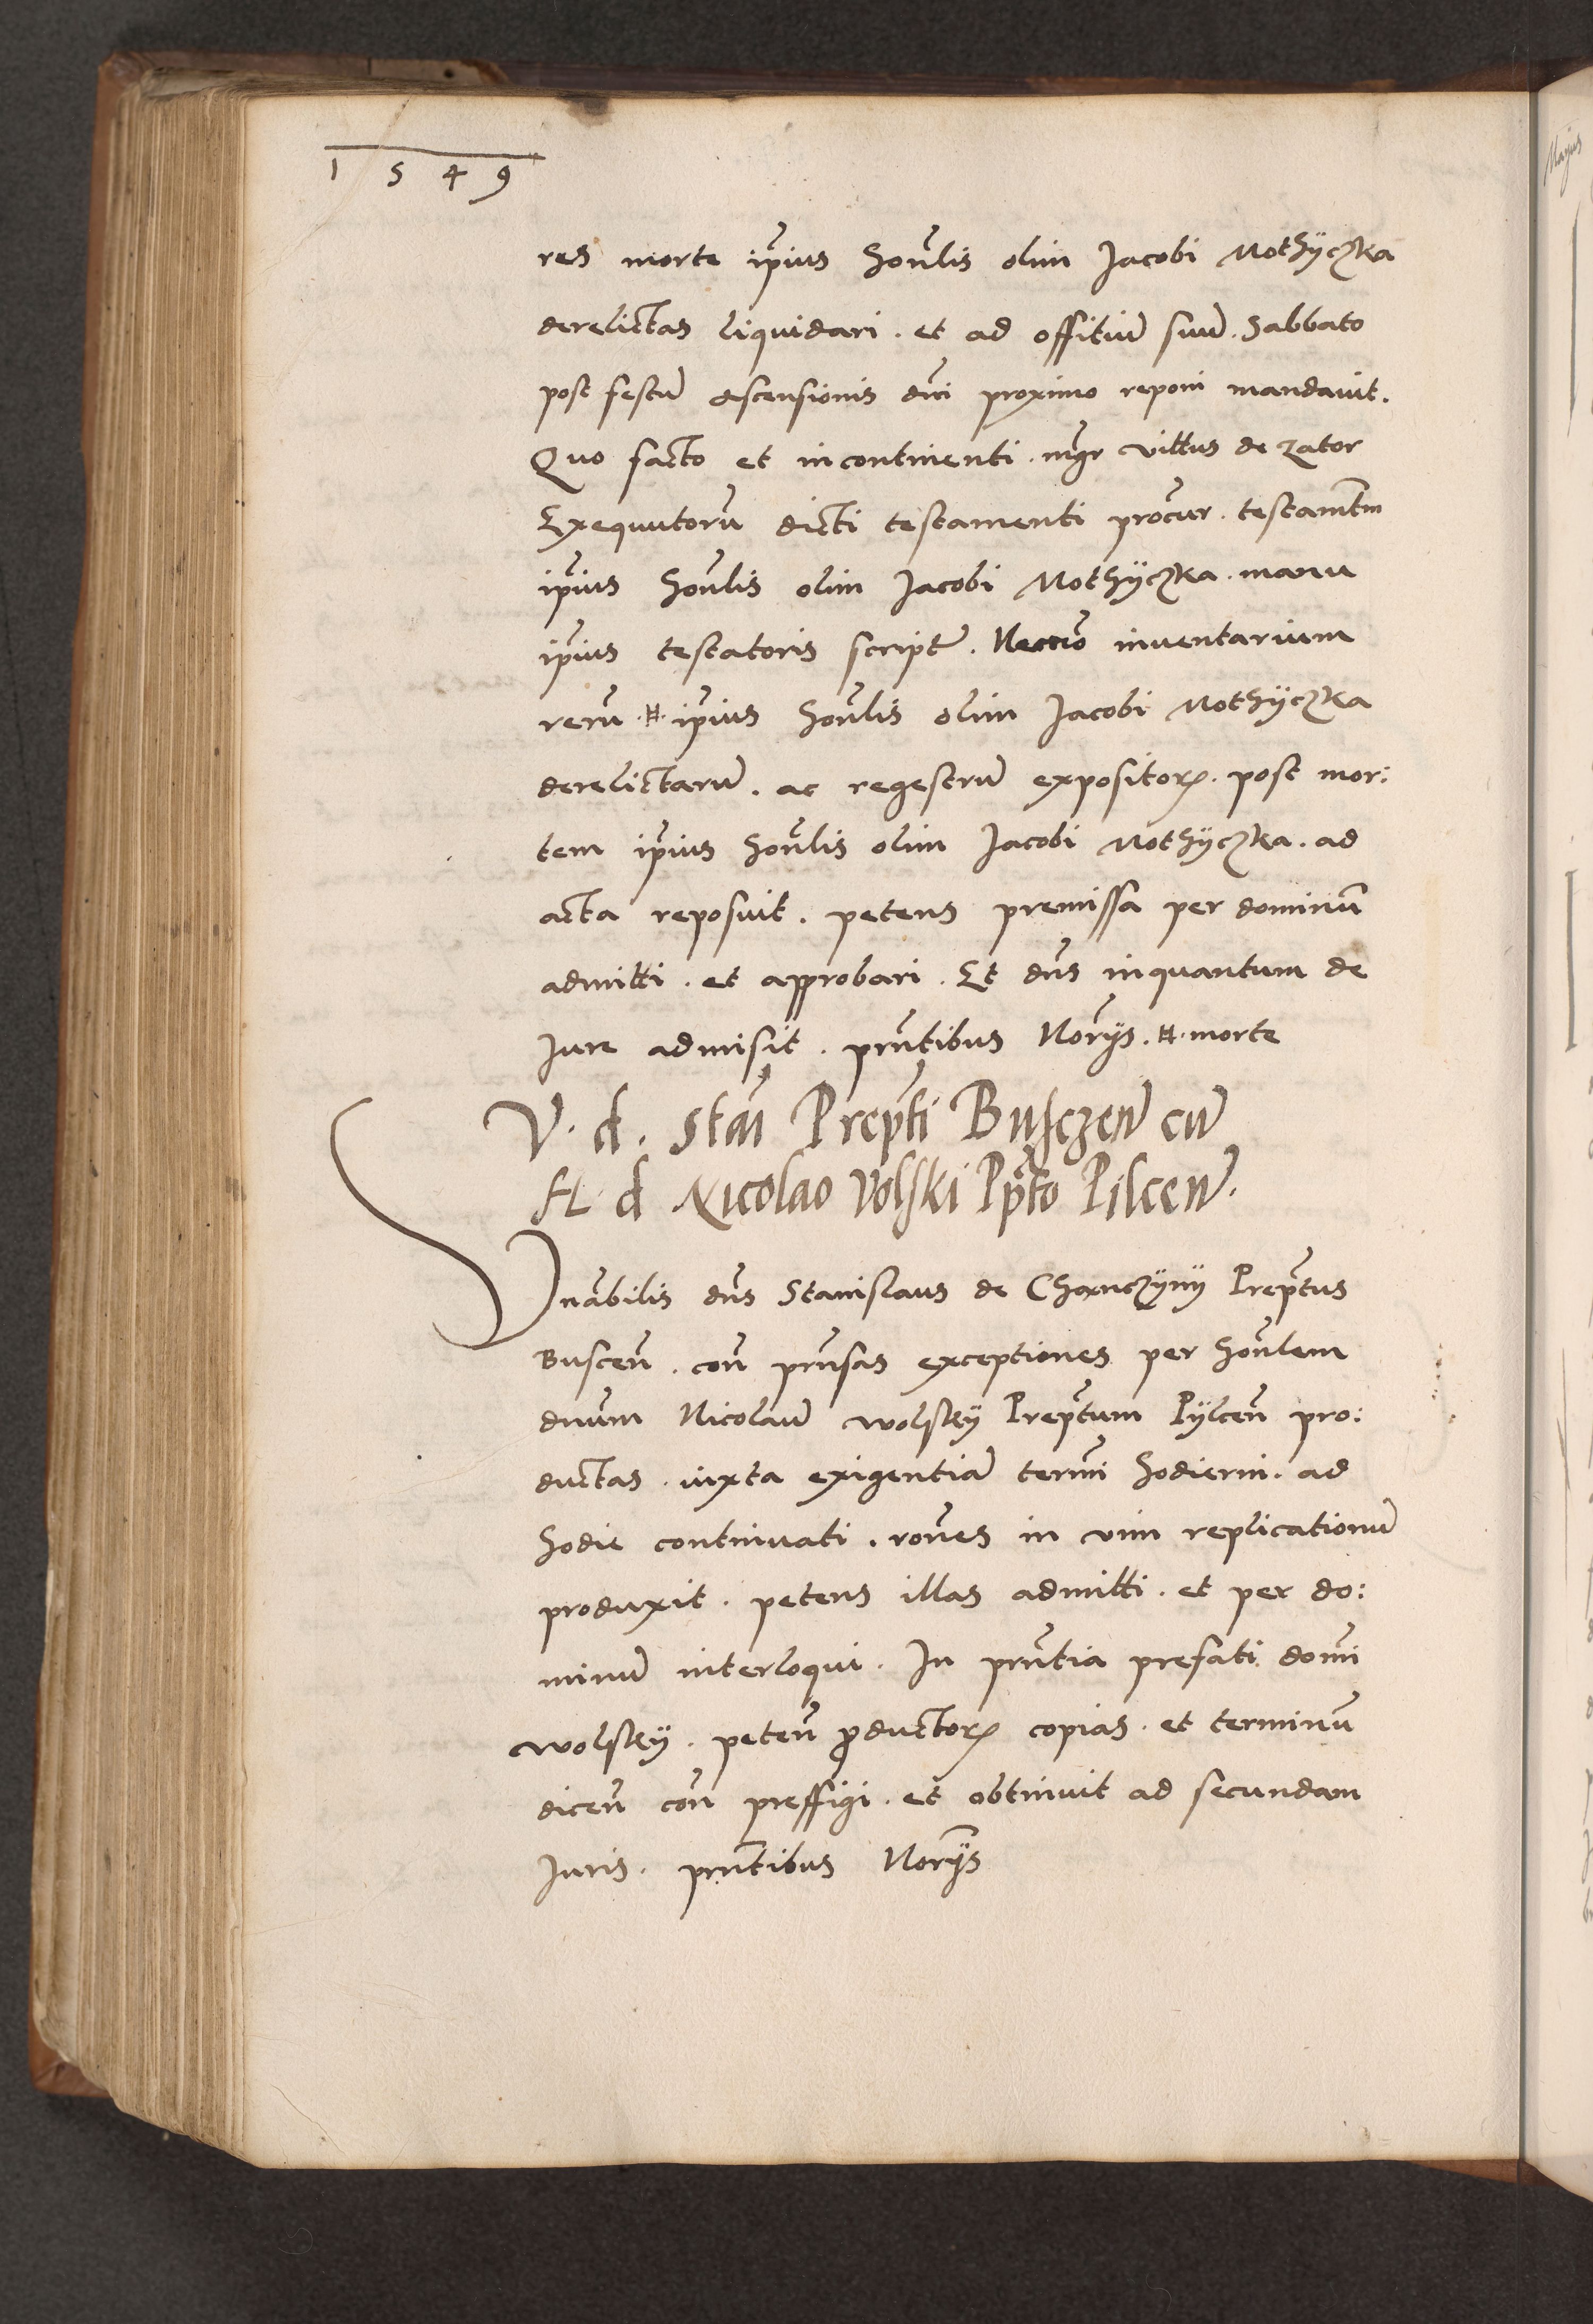 1549
res morte ip̃ius hoñlis olim Jacobi Mothÿczka
derelictas liquidari . et ad offitiũ suũ . Sabbato
post festũ ascensionis dñi proximo reponi mandavit .
Quo facto et incontinenti . mgr̃ vittus de Zator
Exequutorũ dicti testamenti procur̃ . testamt̃m
ip̃ius hoñlis olim Jacobi Mothÿczka . manu
ip̃ius testatoris script̃ . Necnõ inventarium
rerũ .#. ip̃ius hoñlis olim Jacobi Mothÿczka
derelictarũ . ac regestrũ expositoꝝ . post mor:
tem ip̃ius hoñlis olim Jacobi Mothÿczka . ad
acta reposuit . petens premissa per dominũ
admitti . et approbari . Et dñs inquantum de
Jure admisit . pñtibus Norÿs̃ . #. morte
V . d . Stañ Prepti Busczeñ cũ
H . d Nicolao Volski Pp̃to Pilceñ .
Vnãbilis dñs Stanislaus de Charnczÿnÿ Prep̃tus
Busceñ . coñ pñsas exceptiones per hoñlem
dnum Nicolaũ wolskÿ Prep̃tum Pÿlceñ pro:
ductas . iuxta exigentiã termĩ hodierni . ad
hodie continuati . roñes in vim replicationũ
produxit . petens illas admitti . et per do:
minũ interloqui . In pñtia prefati domĩ
wolskÿ . peteñ ꝓductoꝝ copias . et terminũ
diceñ coñ preffigi . et obtinuit ad secundam
Juris . pñtibus Norÿs̃